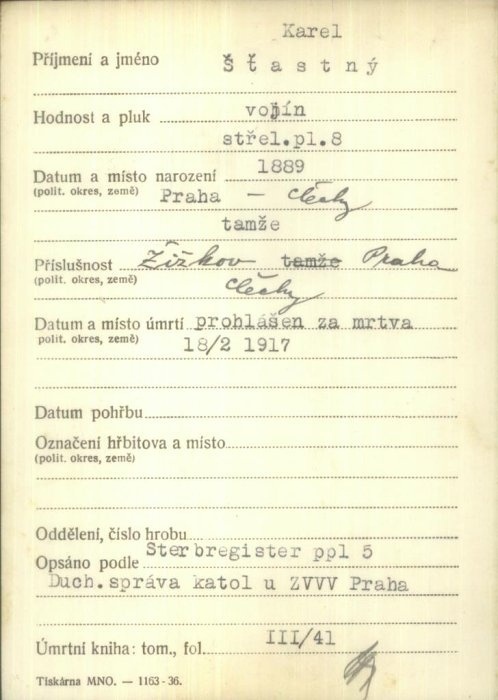 Karel
Příjmení a jméno Šťastný
Hodnost a pluk vojín
střel.pl.8
1889
Datum a místo narození
(polit. okres, země) Praha - Čechy
tamže
Příslušnost Žižkov tamže Praha
(polit. okres, země) Čechy
Datum a místo úmrtí prohlášen za mrtva
polit. okres, země) 18/2 1917
Datum pohřbu
Označení hřbitova a místo
(polit. okres, země)
Oddělení, číslo hrobu
Opsáno podle Sterbregister ppl 5
Duch.správa katol u ZVVV Praha
Úmrtní kniha: tom., fol. III/41
Tiskárna MNO. — 1163-36.